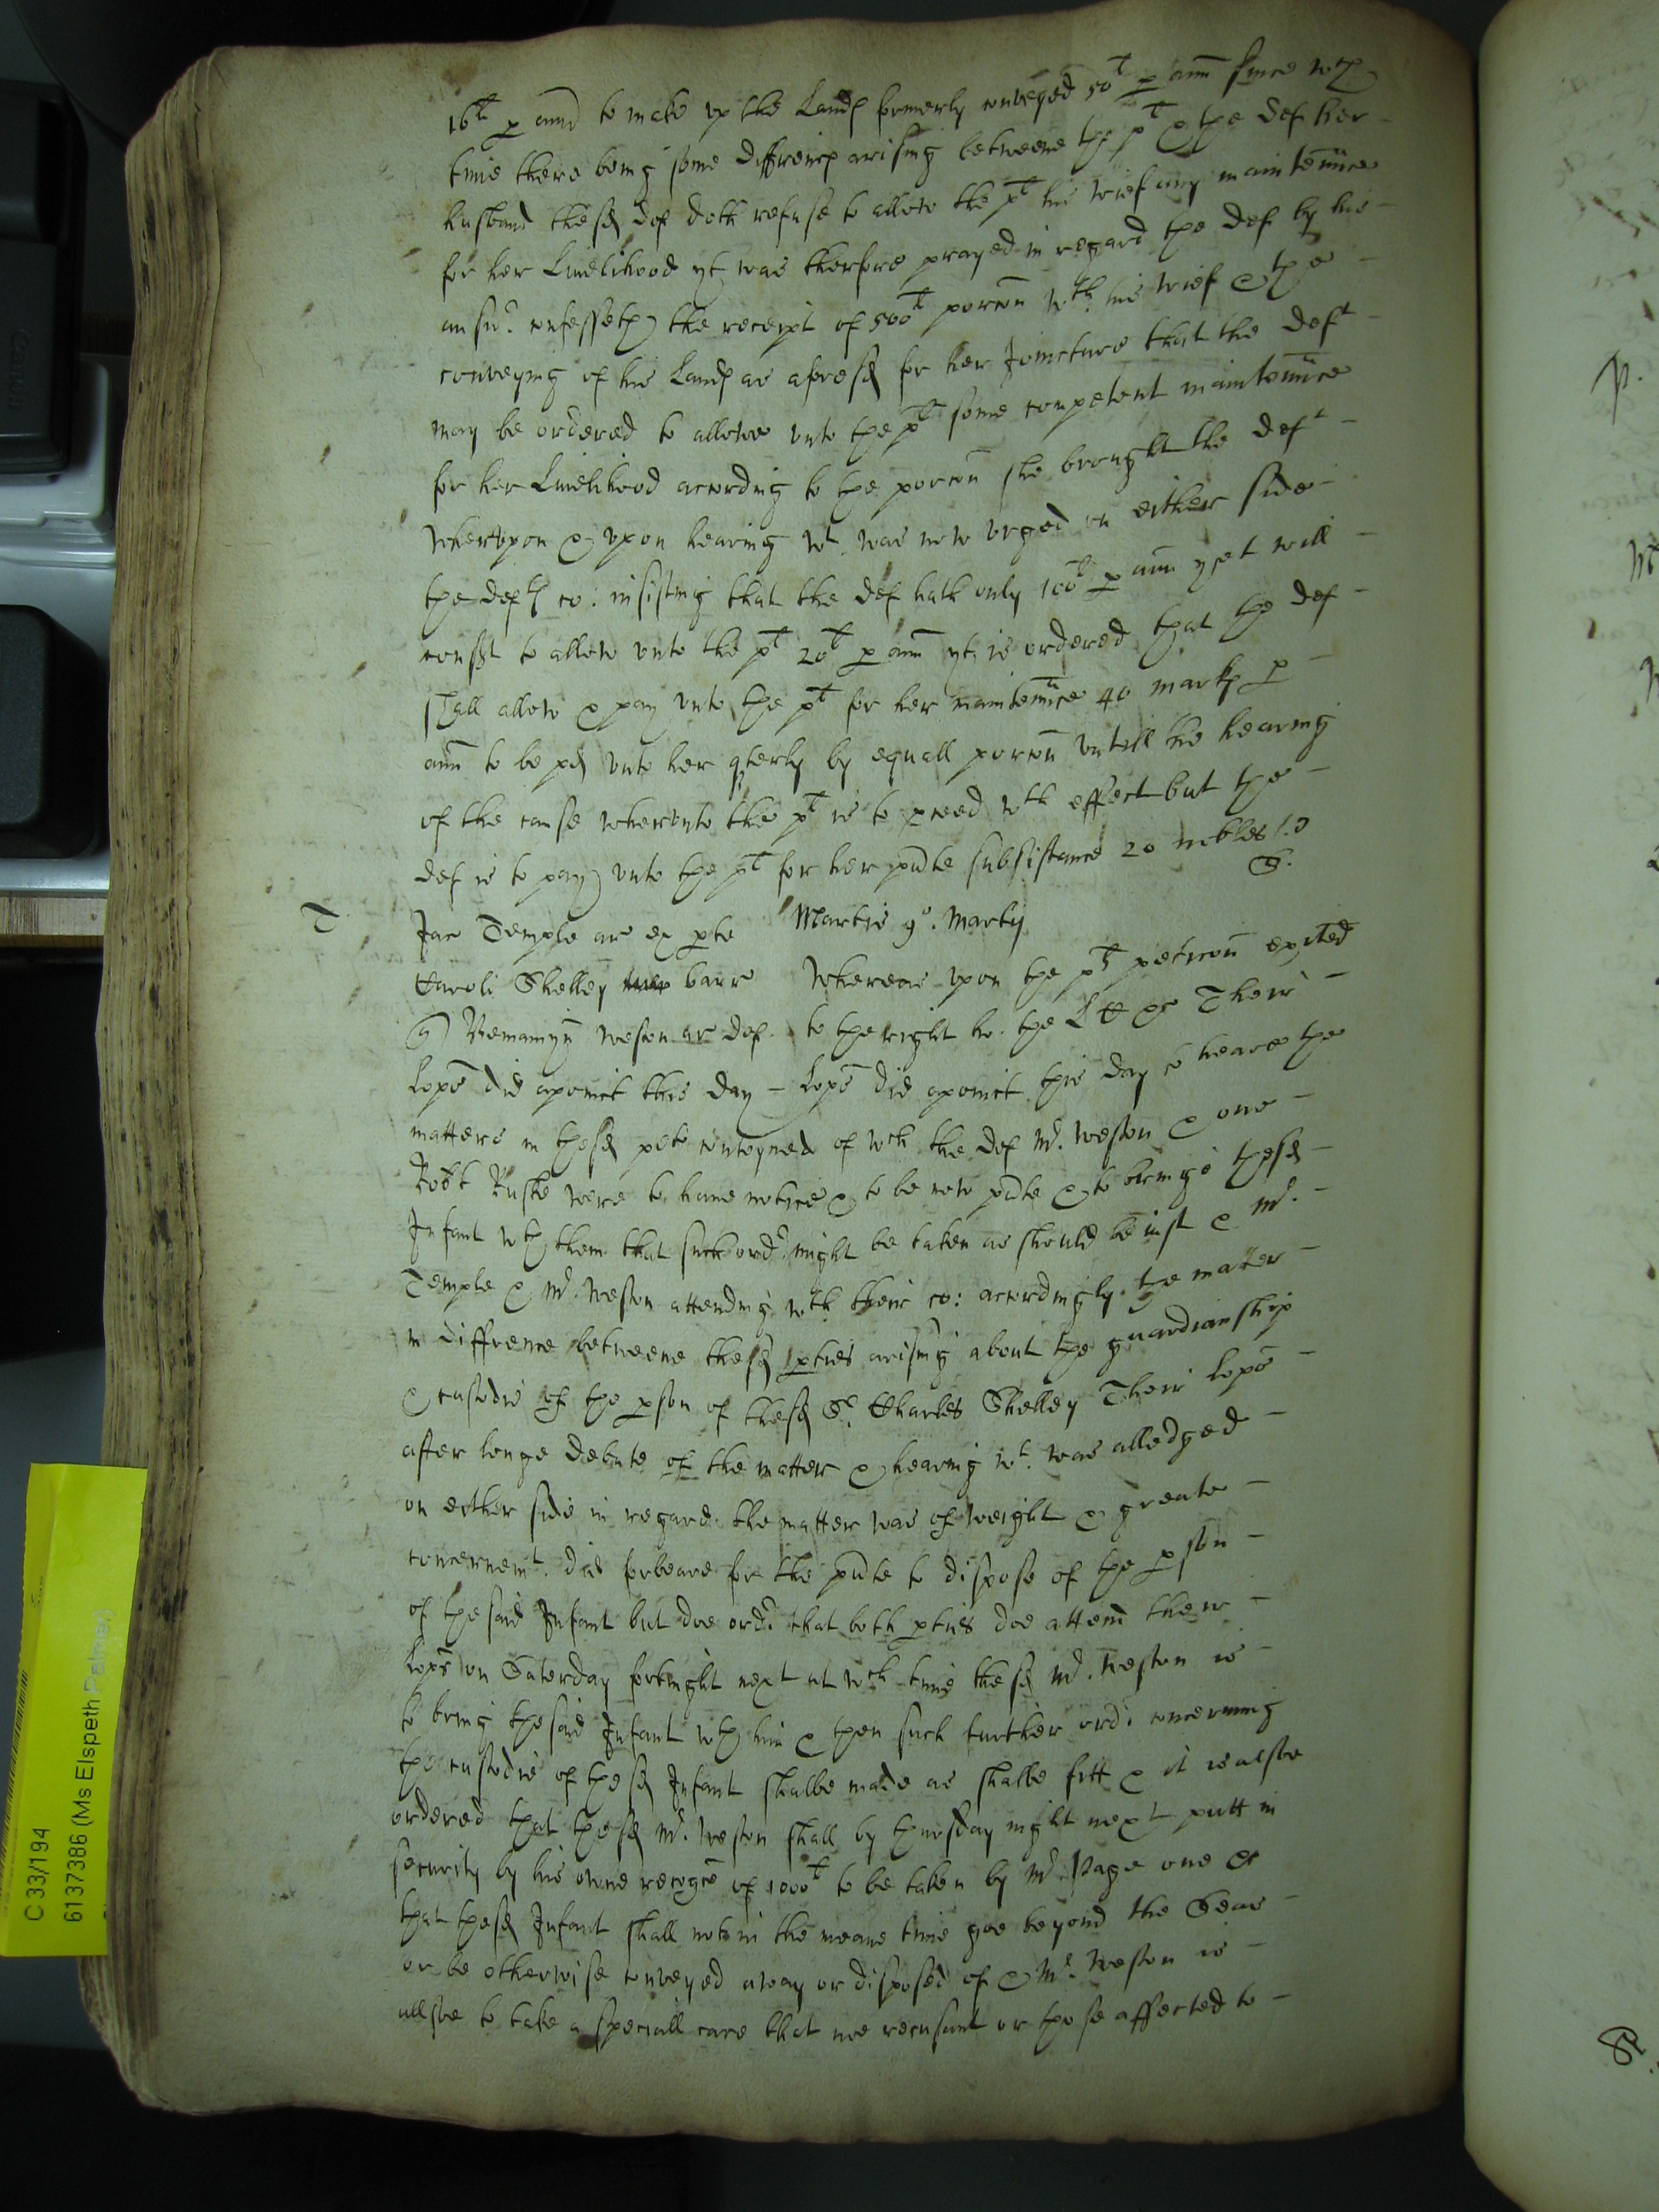 16l p annu to make up the Landes formerly conveyed 50l p ann since wch
time there being some differencs arising betweene the plt & the def her
husband the sd def doth refuse to allow the plt his wief any maintennce
for her Livelihood yt was therfore prayed in regard the def by his
answ. confesseth the receipt of 500l porcon wth his wief & the
conveying of his Landes as aforesd for her Joincture that the deft
may be ordered to allowe unto the plt some competent maintennce
for her Livelihood according to the porcon she brought the deft
Wherupon & upon hearing wt was now urged on either side
the defts co: insisting that the def hath only 100l p ann yet will
consent to allow unto the plt 20l p ann yt is ordered that the def
shall allow & pay unto the plt for her maintennce 40 markes p
ann to be pd unto her qterly by equall porcon untill the hearing
of the cause wherunto the plt is to pceed wth effect but the
def is to pay unto the plt for her pnte subsistance 20 nobles
T Jac Temple ar ex pte Martis 9o. Martij
Caroli Shelley barr Whereas upon the plts peticon exited
Weston ar def. to the right ho. the L Cs Their
Lopps did apoint this day – Lopps did apoint this day to heare the
matters in the sd petn conteyned of wch the def Mr. Weston & one
Robt Ruske were to have notice & to be now pnte & to bringe the sd
Infant wth them that such ordr might be taken as should be iust & Mr.
Temple & Mr. Weston attending wth their co: accordingly. the matter
in diffrence betweene the sd pties arising about the guardianship
& custodie of the pson of the sd Sr. Charles Shelley Their Lopps
after longe debate of the matter & hearing wt. was alledged
on either side in regard the matter was of weight & greate
concernemt. did forbeare for the pnte to dispose of the pson
of the said Infant but doe ordr that both pties doe attend their
Lopps on Saterday fortnight next at wch time the sd Mr. Weston is
to bring the said Infant wth him & then such further ordr concerning
the custodie of the sd Infant shalbe made as shalbe fitt & it is alsoe
ordered that the sd Mr. Weston shall by thursday night next putt in
security by his owne recogce of 1000l to be taken by Mr. Page one &c
that the sd Infant shall not in the meane time goe beyond the Seas
or be otherwise conveyed away or disposed of & Mr. Weston is
allsoe to take a speciall care that noe recusant or those affected to
C 33/194
61373386 (Ms Elspeth Palmer)